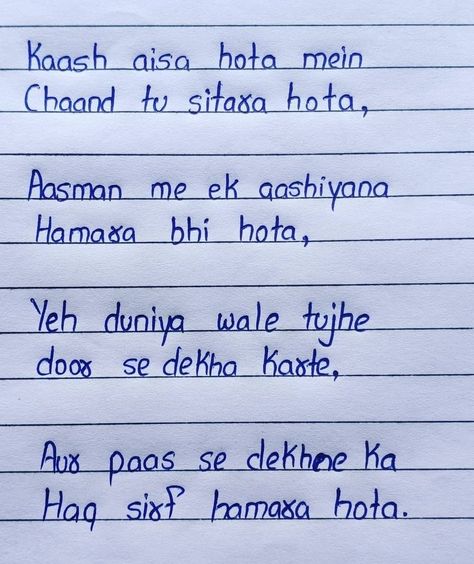 Kaash aisa hota mein
Chaand tu sitara hota,
Aasman me ek aashiyana
Hamara bhi hota,
Yeh duniya wale tujhe
door se dekha Karte,
Aur paas se dekhne Ka
Haq sirf hamara hota.